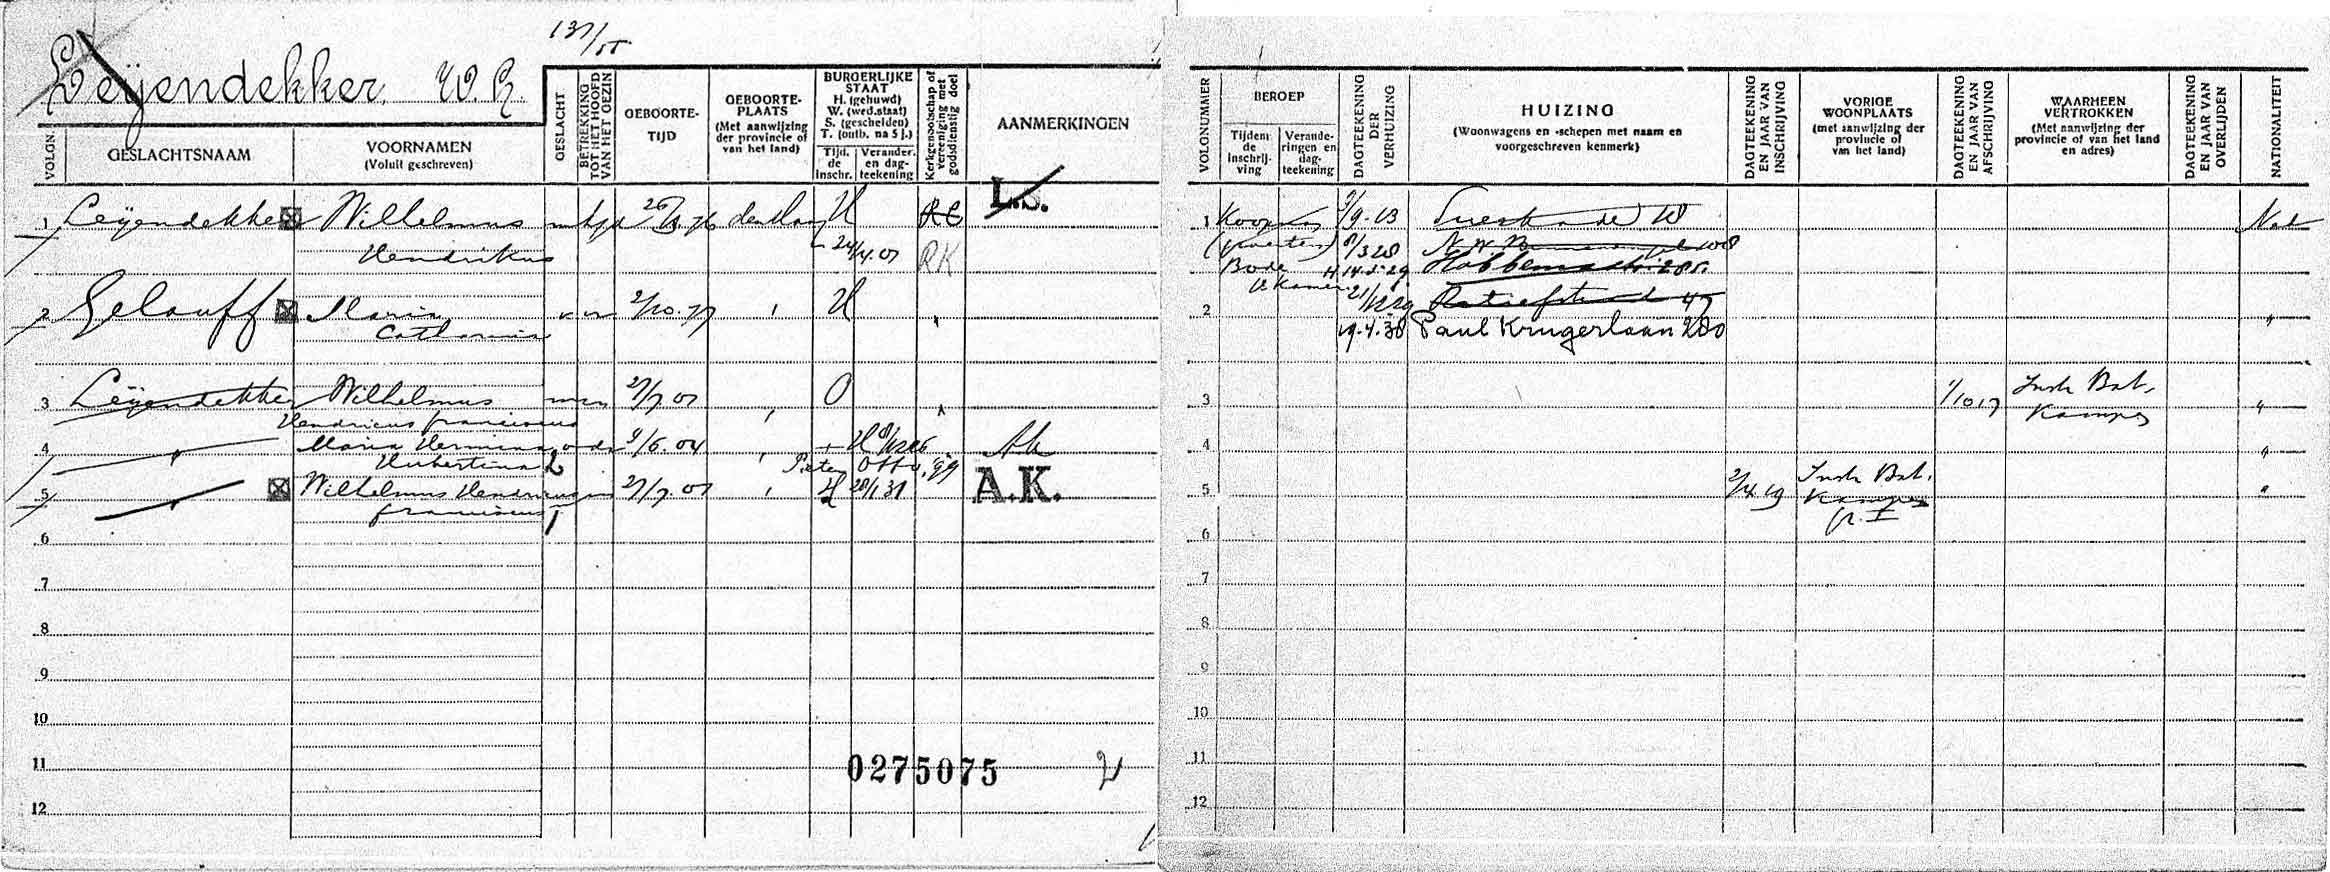 137/55
Leijendekker, W.H.
VOLGN
GESLACHTSNAAM
VOORNAMEN
(Voluit geschreven)
GESLACHT
BETREKKING TOT HET HOOFD VAN HET GEZIN
GEBOORTE-
TIJD
GEBOORTE-
PLAATS
(Met aanwijzing
der provincie of
van het land)
BURGERLIJKE
STAAT
H. (gehuwd)
W. (wed.staat)
S. (gescheiden)
T. (ontb. na 5 j.)
Tijd.
de
inschr.
Verander.
en dag-
teekening
Kerkgenootschap of vereeniging met godsdienstig doel
AANMERKINGEN
L.S.
1 Leijendekker Wilhelmus 26/ 76 den Haag H RC
Hendrikus 24/4.07 RK
2 Gelauff Maria 2/10.77 H
Catharina
3 Leijendekker Wilhelmus 27/7.07 O
Hendricus franciscus
4 " Maria Hermina 9/6.04 H
Hubertina 2 Pieter Otto
5 " Wilhelmus Hendricus 27/7.07 H 28/1 31 A.K.
franciscus 1
6
7
8
9
10
11
12
0275075 2
VOLGNUMMER
BEROEP
Tijdens
de
inschrij-
ving
Verande-
ringen en
dag-
teekening
DAGTEEKENING DER VERHUIZING
HUIZING
(Woonwagens en -schepen met naam en
voorgeschreven kenmerk)
DAGTEEKENING EN JAAR VAN INSCHRIJVING
VORIGE
WOONPLAATS
(met aanwijzing der
provincie of
van het land)
DAGTEEKENING EN JAAR VAN AFSCHRIJVING
WAARHEEN
VERTROKKEN
(Met aanwijzing der
provincie of van het land
en adres)
DAGTEEKENING EN JAAR VAN OVERLIJDEN
NATIONALITEIT
1 Koopman /9-13 Ned
8/3 28 108
Bode 14.5.29 Hobbemastr. 285
2e Kamer 21/12 29 Retiefstraat 47
2 19.4.38 Paul Krugerlaan 280 "
3 1/10 17 Instr Bat. "
Kampen
4 "
5 2/4 19 Instr Bat. "
Kampen
6
7
8
9
10
11
12